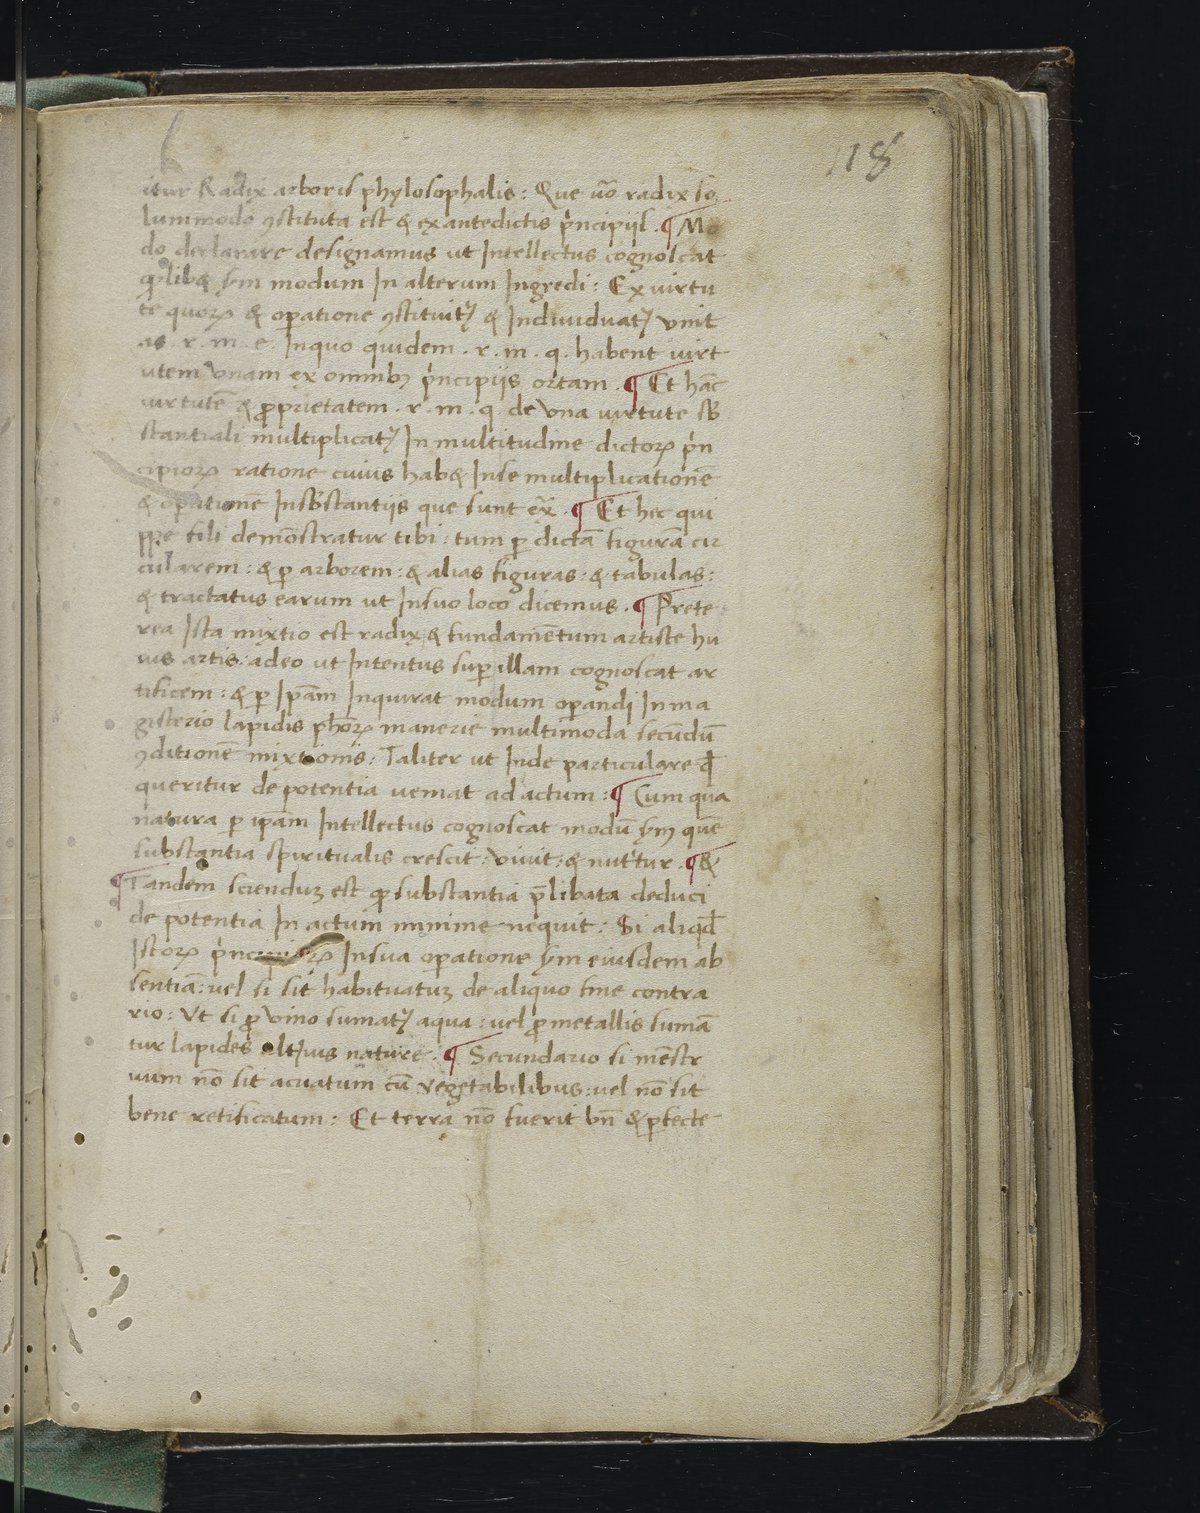 118
itur Radix arboris phylosophalis : Que uo᷃ radix so
lummodo ꝯstituta est & ex antedictis pͥncipijs . ¶ Mo
do declarare designamus ut Intellectus cognoscat
qͥlibꝫ modum In alterum Ingredi : Ex uirtu
te quoꝝ & oꝑatione ꝯstituitꝛ & Indiuiduatꝛ vnit
as . r . m . e . Inquo quidem . r . m . q . habent uirt
utem vnam ex omnibꝫ pͥncipijs ortam . ¶ Et hāc
uirtutē & ꝓprietatem . r . m . q . de vna uirtute sb̄
stantiali multiplicatꝛ In multitudine dictoꝝ pͥn
cipioꝝ ratione cuius hab& Inse multiplicationē
& oꝑatione Insb̄stantijs que sunt ex̄ . ¶ Et hec qui
ppe fili demōstratur tibi : tum ꝑ dictā figurā cir
cularem : & ꝑ arborem : & alias figuras : & tabulas :
& tractatus earum ut Insuo loco dicemus . ¶ Prete
rea Ista mixtio est radix & fundamētum artiste hu
ius artis : adeo ut Intentus suꝑ illam cognoscat ar
tificem : & ꝑ Ipām Inquirat modum oꝑandi In ma
gisterio lapidis phōꝝ manerie multimoda secūdū
ꝯditionē mixtionis : Taliter ut Inde particulare qd̄
queritur de potentia ueniat ad actum : ¶ Cum qua
natura ꝑ ipām Intellectus cognoscat modū quē
substantia spiritualis crescit : viuit : & nutͥtur . ¶ &
¶ Tandem scienduꝫ est qͦ substantia p̄libata deduci
de potentia In actum minime nequit : Si aliqd̄
Istoꝝ pͥncipioꝝ Insua oꝑatione eiusdem ab
sentiā : uel si sit habituatuꝫ de aliquo sine contra
rio : Ut si ꝓ vino sumatꝛ aqua : uel ꝓ metallis sumā
tur lapides nature . ¶ Secundario si mēstr
uum nō sit acuatum cū vegetabilibus : uel nō sit
bene retificatum : Et terra nō fuerit bn̄ & ꝑfecte